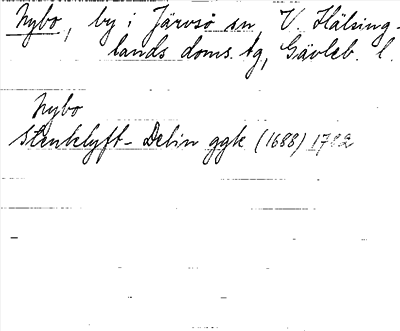 Nybo, by i Järvsö sn V. Hälsing-
lands doms. tg, Gävleb. l.
Nybo
Stenklyft- Delin ggk (1688) 1782